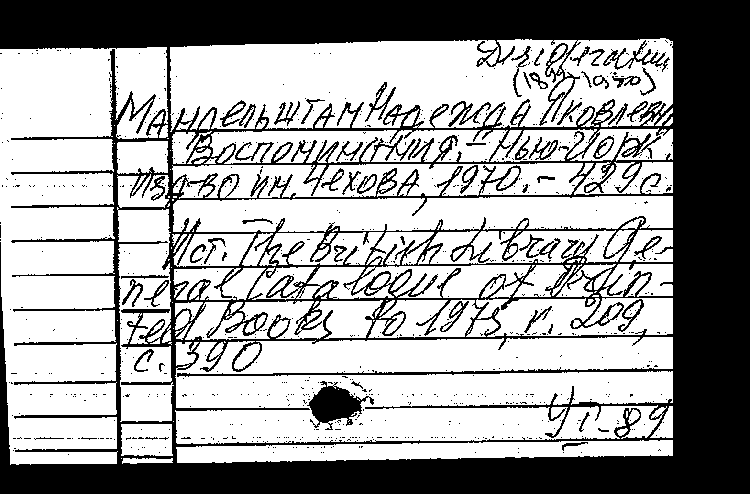 Desideratum
(1899-1980)
Мандельштам Надежда Яковлевн
Воспоминания.- Нью-Йорк.
Изд-во им. Чехова, 1970.- 429 с.
Ист. The British Library Ge-
neral Catalogue of Prin-
ted Books to 1975, v. 209,
с. 390